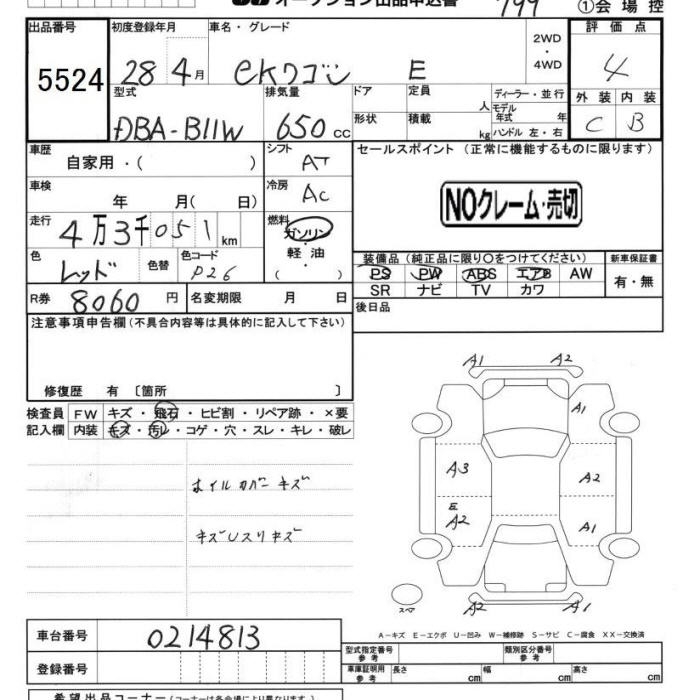 オークション出品申込書 799 ①会場控
出品番号 初度登録年月 車名・グレード 2WD・4WD 評価点
5524 28年4月 eKワゴン E 4
型式 排気量 ドア 定員 人 ディーラー・並行 外装 内装
DBA-B11W 650cc 形状 積載 kg モデル年式 年 ハンドル 左・右 C B
車歴 自家用・( ) シフト AT セールスポイント (正常に機能するものに限ります)
車検 年 月( 日) 冷房 AC NOクレーム・売切
走行 4万3千051km 燃料 ガソリン・軽油・( )
色 レッド 色替 色コード P26 装備品 (純正品に限り○をつけてください) 新車保証書
PS PW ABS エアB AW 有・無
SR ナビ TV カワ
R券 8060円 名変期限 月 日 後日品
注意事項申告欄 (不具合内容等は具体的に記入して下さい)
修復歴 有 〔箇所 〕
検査員 FW キズ・飛石・ヒビ割・リペア跡・×要
記入欄 内装 キズ・汚レ・コゲ・穴・スレ・キレ・破レ
A1 A2
A1
A3 A2
ホイルカバーキズ
E
A2 A1
キズUスリキズ
スペア A2 A1
A-キズ E-エクボ U-凹み W-補修跡 S-サビ C-腐食 XX-交換済
車台番号 0214813
型式指定番号 参考 類別区分番号 参考
登録番号 車庫証明用 参考 長さ cm 幅 cm 高さ cm
希望出品コーナー (コーナーは各会場により異なります。)